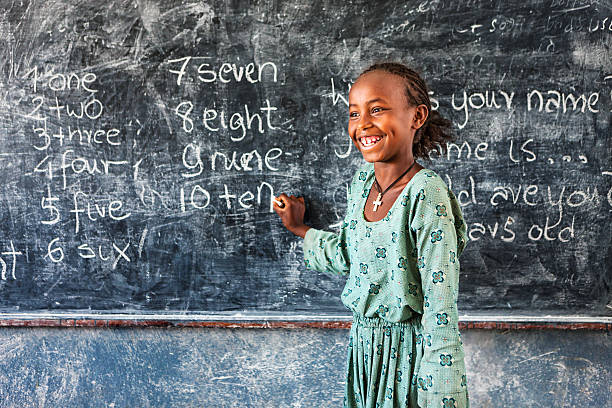 1 one
2 two
3 three
4 four
5 five
6 six
7 seven
8 eight
9 nine
10 ten
s your name
name is...
ave you
years old